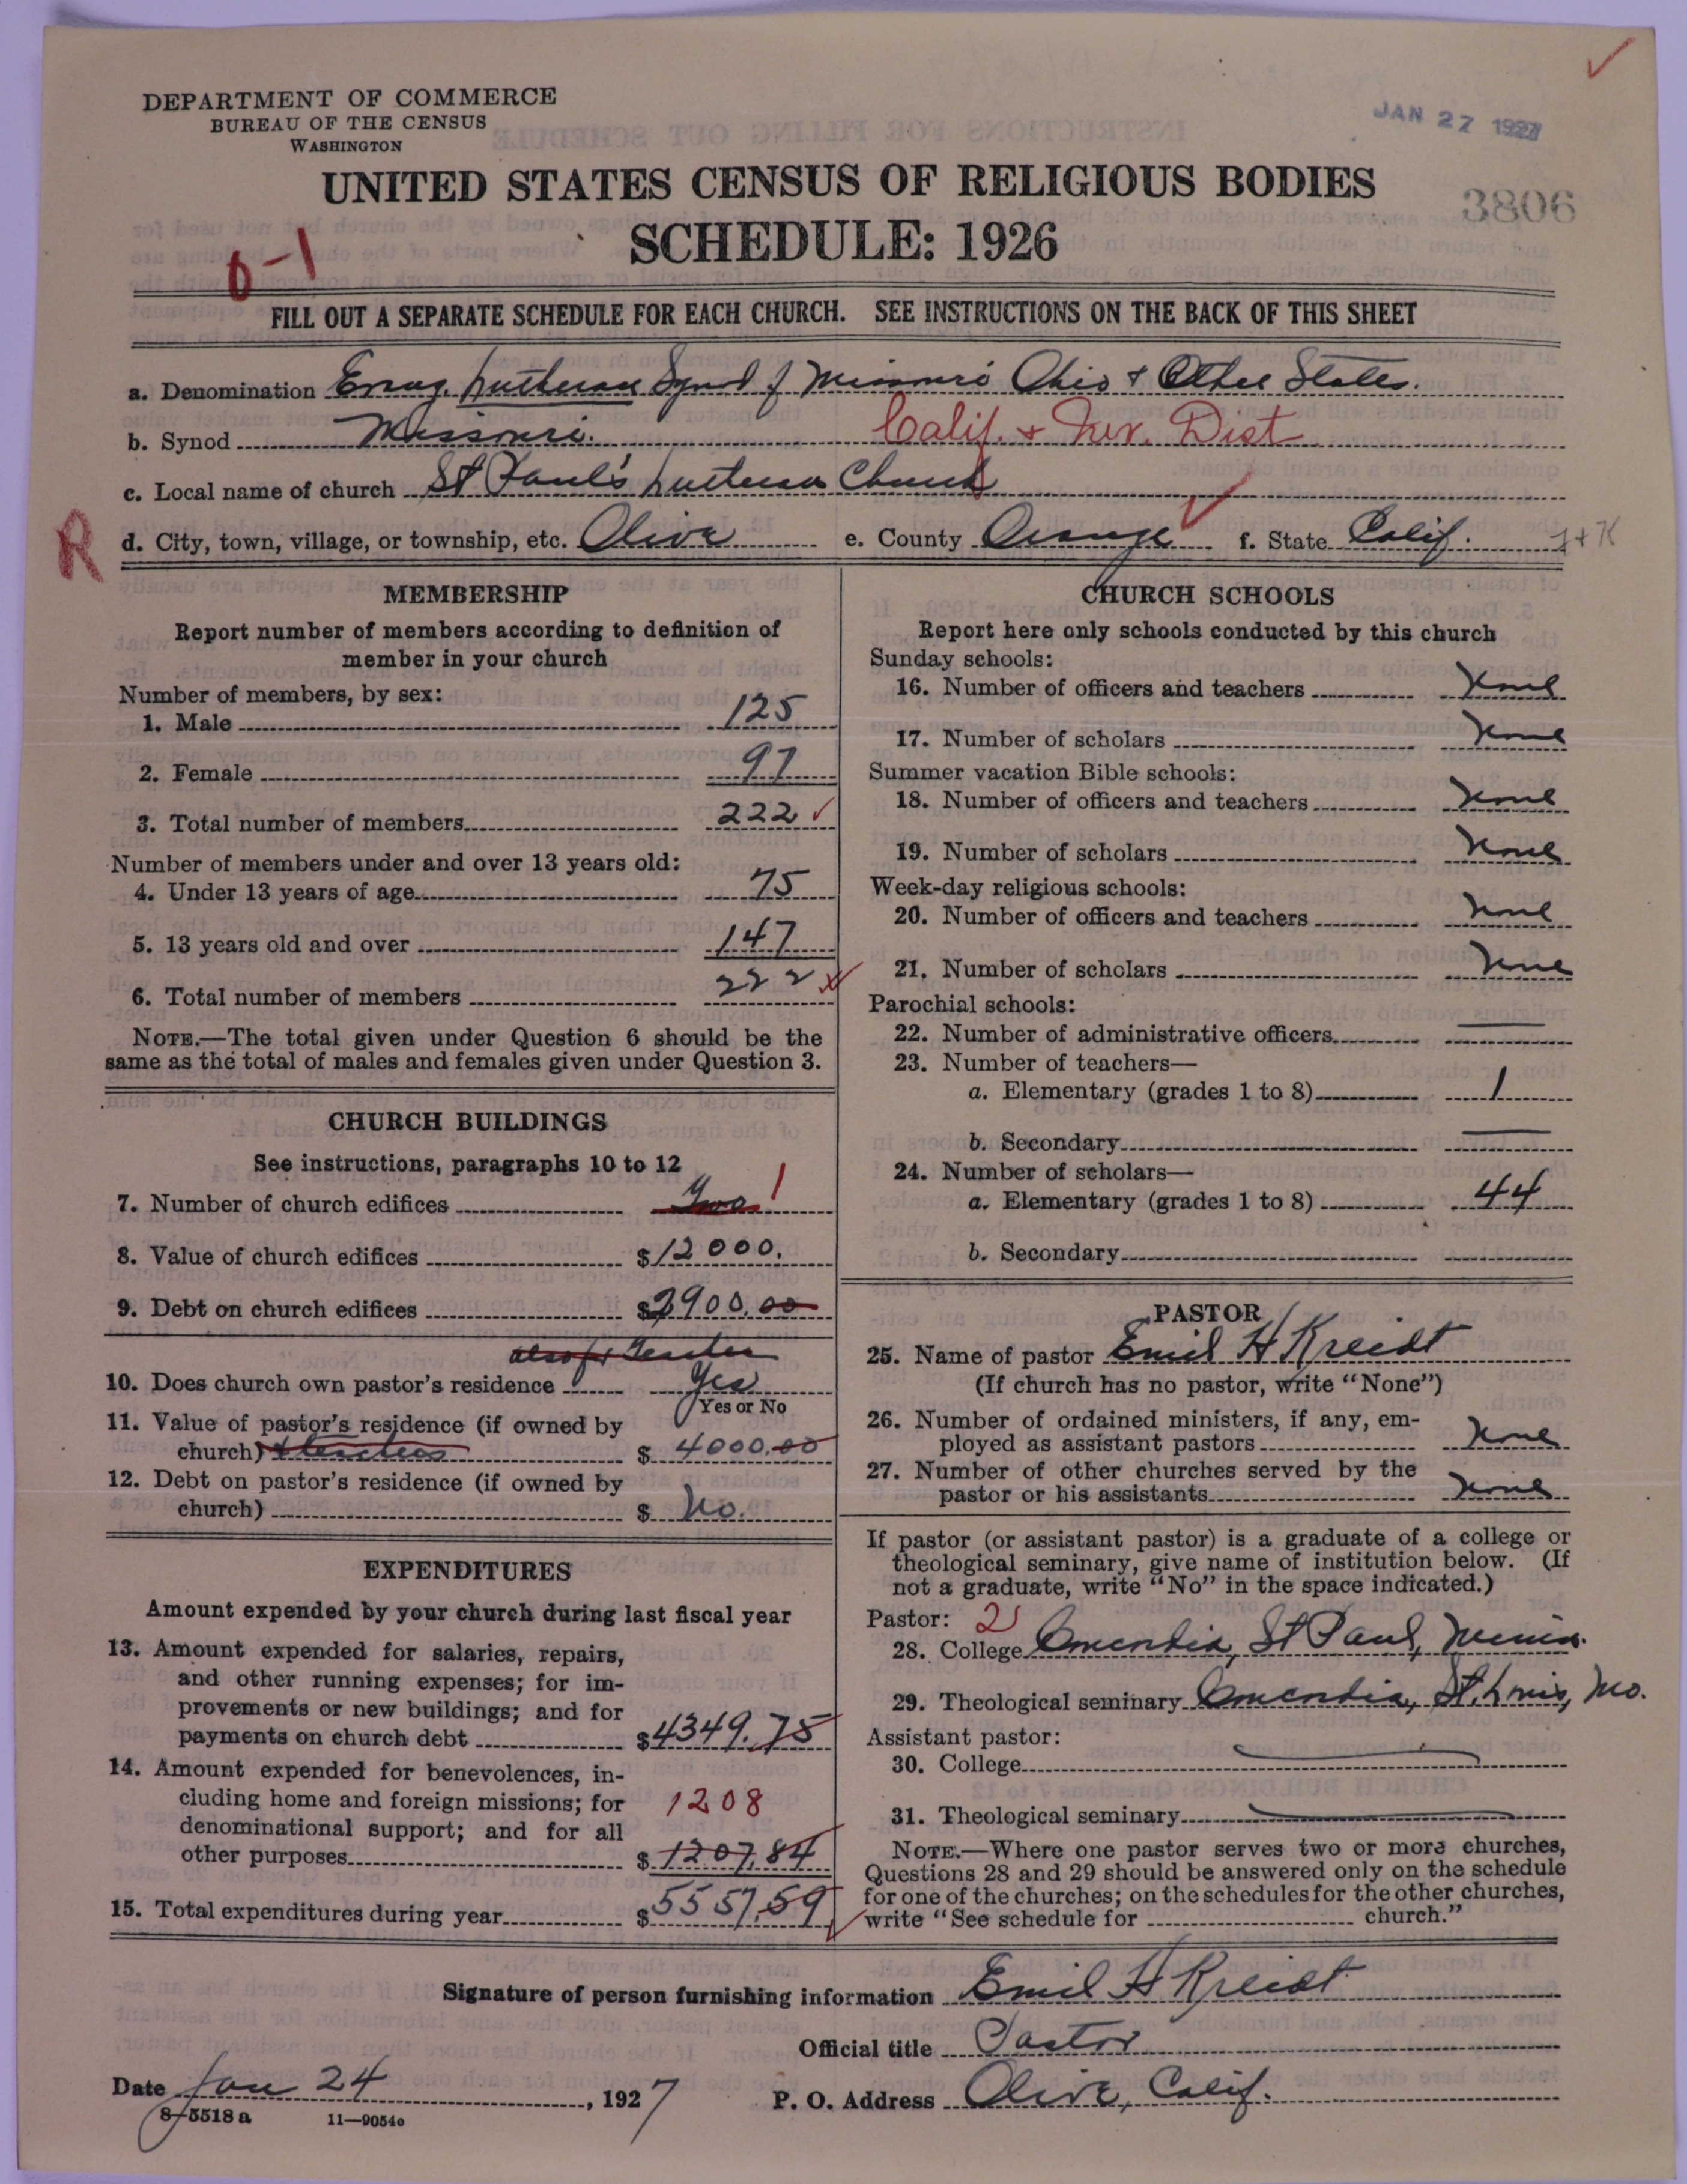 DEPARTMENT OF COMMERCE
BUREAU OF THE CENSUS
WASHINGTON
JAN 27 1927
UNITED STATES CENSUS OF RELIGIOUS BODIES
3806
SCHEDULE: 1926
0-1
FILL OUT A SEPARATE SCHEDULE FOR EACH CHURCH. SEE INSTRUCTIONS ON THE BACK OF THIS SHEET
a. Denomination Evang. Lutheran Synod of Missouri Ohio & Other States.
b. Synod Missouri. Calif. & Nev. Dist
c. Local name of church St Paul's Lutheran Church
R
d. City, town, village, or township, etc. Olive e. County Orange f. State Calif.
MEMBERSHIP
Report number of members according to definition of
member in your church
Number of members, by sex:
1. Male 125
2. Female 97
3. Total number of members 222
Number of members under and over 13 years old:
4. Under 13 years of age 75
5. 13 years old and over 147
6. Total number of members 222
NOTE.—The total given under Question 6 should be the
same as the total of males and females given under Question 3.
CHURCH BUILDINGS
See instructions, paragraphs 10 to 12
7. Number of church edifices Two 1
8. Value of church edifices $12000.
9. Debt on church edifices $3900.00
also for Teacher
10. Does church own pastor's residence Yes
Yes or No
11. Value of pastor's residence (if owned by
church) & teachers $ 4000.00
12. Debt on pastor's residence (if owned by
church) $ No.
EXPENDITURES
Amount expended by your church during last fiscal year
13. Amount expended for salaries, repairs,
and other running expenses; for im-
provements or new buildings; and for
payments on church debt $4349.75
14. Amount expended for benevolences, in-
cluding home and foreign missions; for 1208
denominational support; and for all
other purposes $ 1207.84
15. Total expenditures during year $5557.59
CHURCH SCHOOLS
Report here only schools conducted by this church
Sunday schools:
16. Number of officers and teachers None
17. Number of scholars None
Summer vacation Bible schools:
18. Number of officers and teachers None
19. Number of scholars None
Week-day religious schools:
20. Number of officers and teachers None
21. Number of scholars None
Parochial schools:
22. Number of administrative officers
23. Number of teachers—
a. Elementary (grades 1 to 8) 1
b. Secondary
24. Number of scholars—
a. Elementary (grades 1 to 8) 44
b. Secondary
PASTOR
25. Name of pastor Emil H Kreidt
(If church has no pastor, write "None")
26. Number of ordained ministers, if any, em-
ployed as assistant pastors None
27. Number of other churches served by the
pastor or his assistants None
If pastor (or assistant pastor) is a graduate of a college or
theological seminary, give name of institution below. (If
not a graduate, write "No" in the space indicated.)
Pastor: 2
28. College Concordia, St Paul, Minn.
29. Theological seminary Concordia, St. Louis, Mo.
Assistant pastor:
30. College
31. Theological seminary
NOTE.—Where one pastor serves two or more churches,
Questions 28 and 29 should be answered only on the schedule
for one of the churches; on the schedules for the other churches,
write "See schedule for church."
Signature of person furnishing information Emil H Kreidt
Official title Pastor
Date Jan 24, 1927 P. O. Address Olive, Calif.
8-5518 a 11-9054o